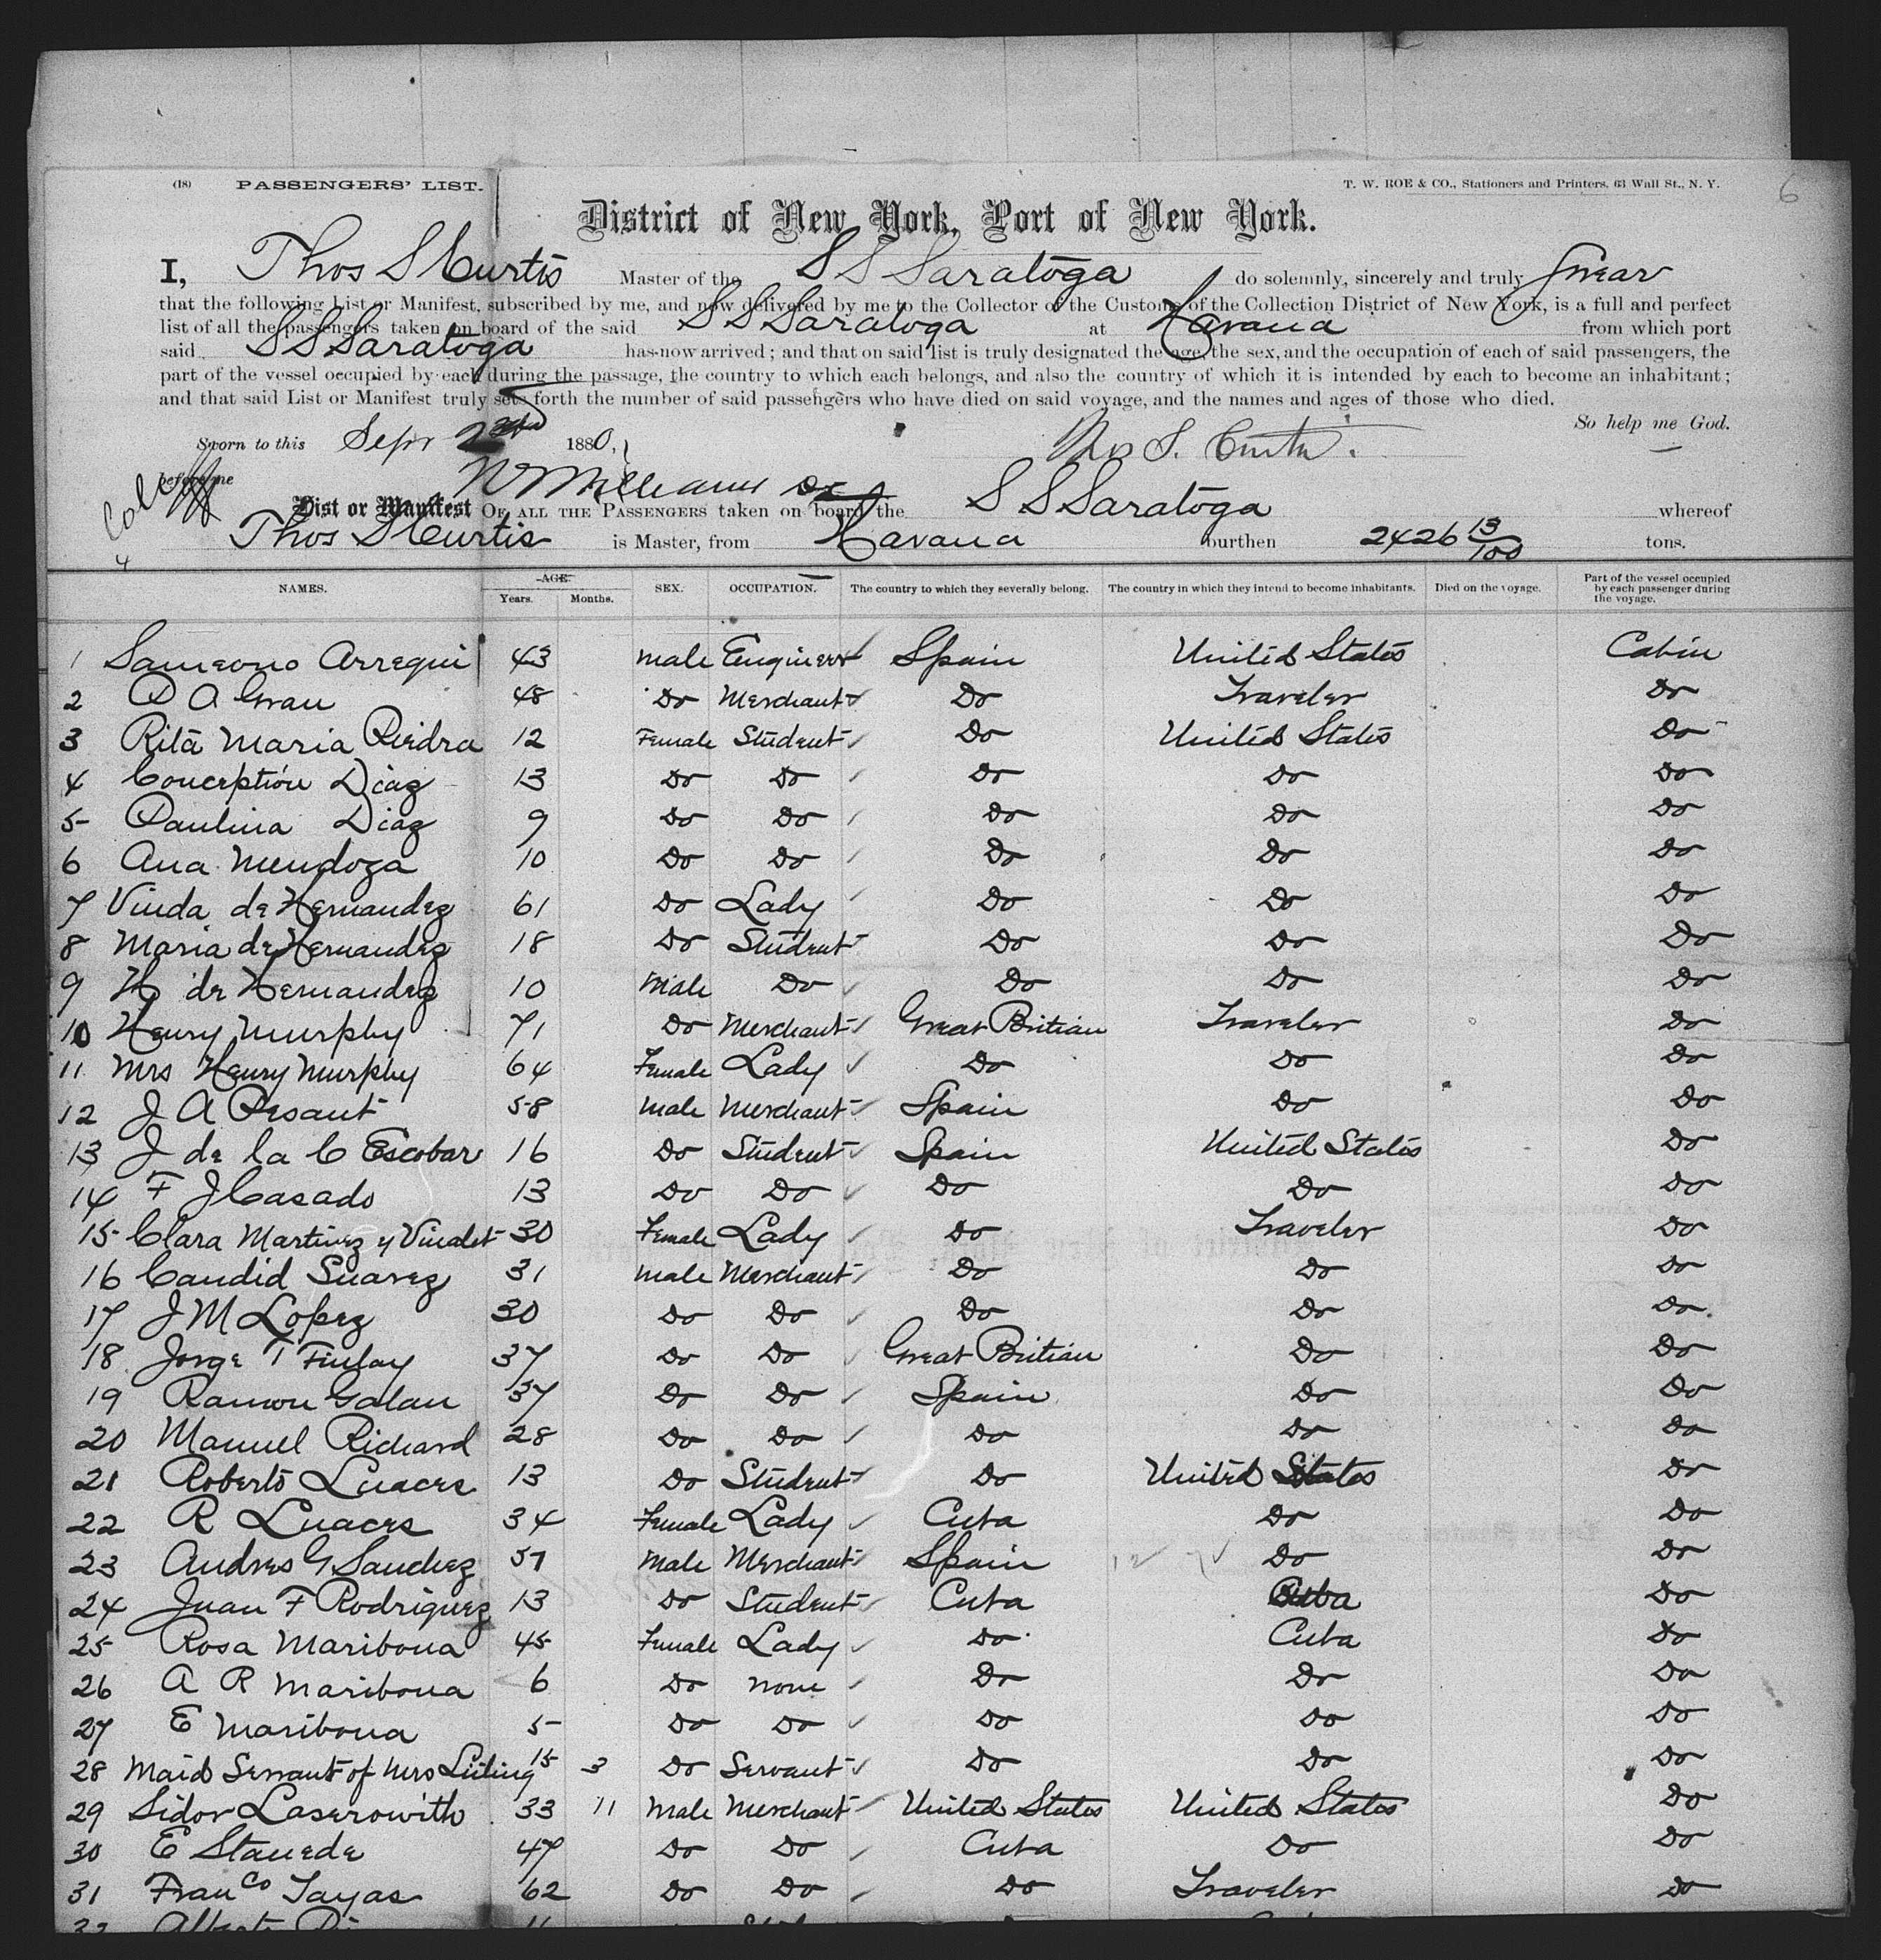 6
(18) PASSENGERS' LIST. T. W. ROE & CO., Stationers and Printers, 63 Wall St., N. Y.
District of New York, Port of New York.
I, Thos S Curtis Master of the S S Saratoga do solemnly, sincerely and truly Swear
that the following List or Manifest, subscribed by me, and now delivered by me to the Collector of the Customs of the Collection District of New York, is a full and perfect
list of all the passengers taken on board of the said S S Saratoga at Havana from which port
said S S Saratoga has now arrived; and that on said list is truly designated the age, the sex, and the occupation of each of said passengers, the
part of the vessel occupied by each during the passage, the country to which each belongs, and also the country of which it is intended by each to become an inhabitant;
and that said List or Manifest truly sets forth the number of said passengers who have died on said voyage, and the names and ages of those who died.
So help me God.
Sworn to this Sepr 1880, Thos S. Curtis.
before me Williams
List or Manifest OF ALL THE PASSENGERS taken on board the S S Saratoga whereof
Thos S Curtis is Master, from Havana burthen 2426 13/100 tons.
4
NAMES. AGE. Years. Months. SEX. OCCUPATION. The country to which they severally belong. The country in which they intend to become inhabitants. Died on the voyage. Part of the vessel occupied by each passenger during the voyage.
1 Arrequi 43 male Engineer Spain United States Cabin
2 P A Grau 48 Do Merchant Do Traveler Do
3 Rita Maria Piedra 12 Female Student Do United States Do
4 Conception Diaz 13 Do Do Do Do Do
5 Paulina Diaz 9 Do Do Do Do Do
6 Ana Mendoza 10 Do Do Do Do Do
7 Viuda de Hernandez 61 Do Lady Do Do Do
8 Maria de Hernandez 18 Do Student Do Do Do
9 H de Hernandez 10 Male Do Do Do Do
10 Henry Murphy 71 Do Merchant Great Britian Traveler Do
11 Mrs Henry Murphy 64 Female Lady Do Do Do
12 J A Pesant 58 male Merchant Spain Do Do
13 J de la C Escobar 16 Do Student Spain United States Do
14 F J Casado 13 Do Do Do Do Do
15 Clara Martinez y Vinalet 30 Female Lady Do Traveler Do
16 Candid Suarez 31 male Merchant Do Do Do
17 J M Lopez 30 Do Do Do Do Do
18 Jorge T Finlay 37 Do Do Great Britian Do Do
19 Ramon Galan 37 Do Do Spain Do Do
20 Manuel Richard 28 Do Do Do Do Do
21 Roberto Luaces 13 Do Student Do United States Do
22 R Luaces 34 Female Lady Cuba Do Do
23 Andres G Sanchez 57 Male Merchant Spain Do Do
24 Juan F Rodriguez 13 Do Student Cuba Cuba Do
25 Rosa Maribona 45 Female Lady Do Cuba Do
26 A R Maribona 6 Do none Do Do Do
27 E Maribona 5 Do Do Do Do Do
28 Maid Servant of Mrs Lüling 15 3 Do Servant Do Do Do
29 Sidor Laserowith 33 11 Male Merchant United States United States Do
30 E Stanede 47 Do Do Cuba Do Do
31 Franco Tayas 62 Do Do Do Traveler Do
32